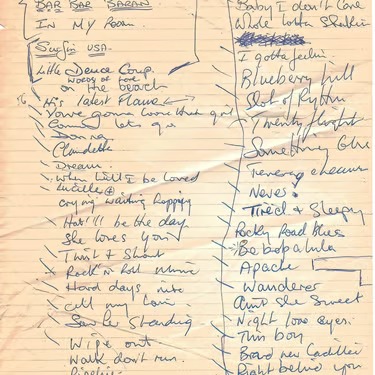 BAR BAR BARAN
IN MY ROOM
SURFIN USA.
Little Deuce Coup.
WORDS OF LOVE
on the beach
His latest Flame
You're gonna lose that girl
C'mon let's go
Donna
Claudette
Dream.
When will I be loved
Lucille
crying waiting hopping
That'll be the day
She loves you
Twist & Shout
Rock n Roll Music
Hard days nite
call my name
Standing
Wipe out
Walk don't run.
Pipeline
Baby I don't Care
Whole Lotta Shakin
I gotta feelin
Blueberry hill
Slot of Rythm
Twenty flight
Something Else
Never
Tired & Sleepy
Rocky Road Blues
Be bop a lula
Apache
Wanderer
Aint she Sweet
Night love eyes.
This boy
Brand new Cadillac
Right behind you